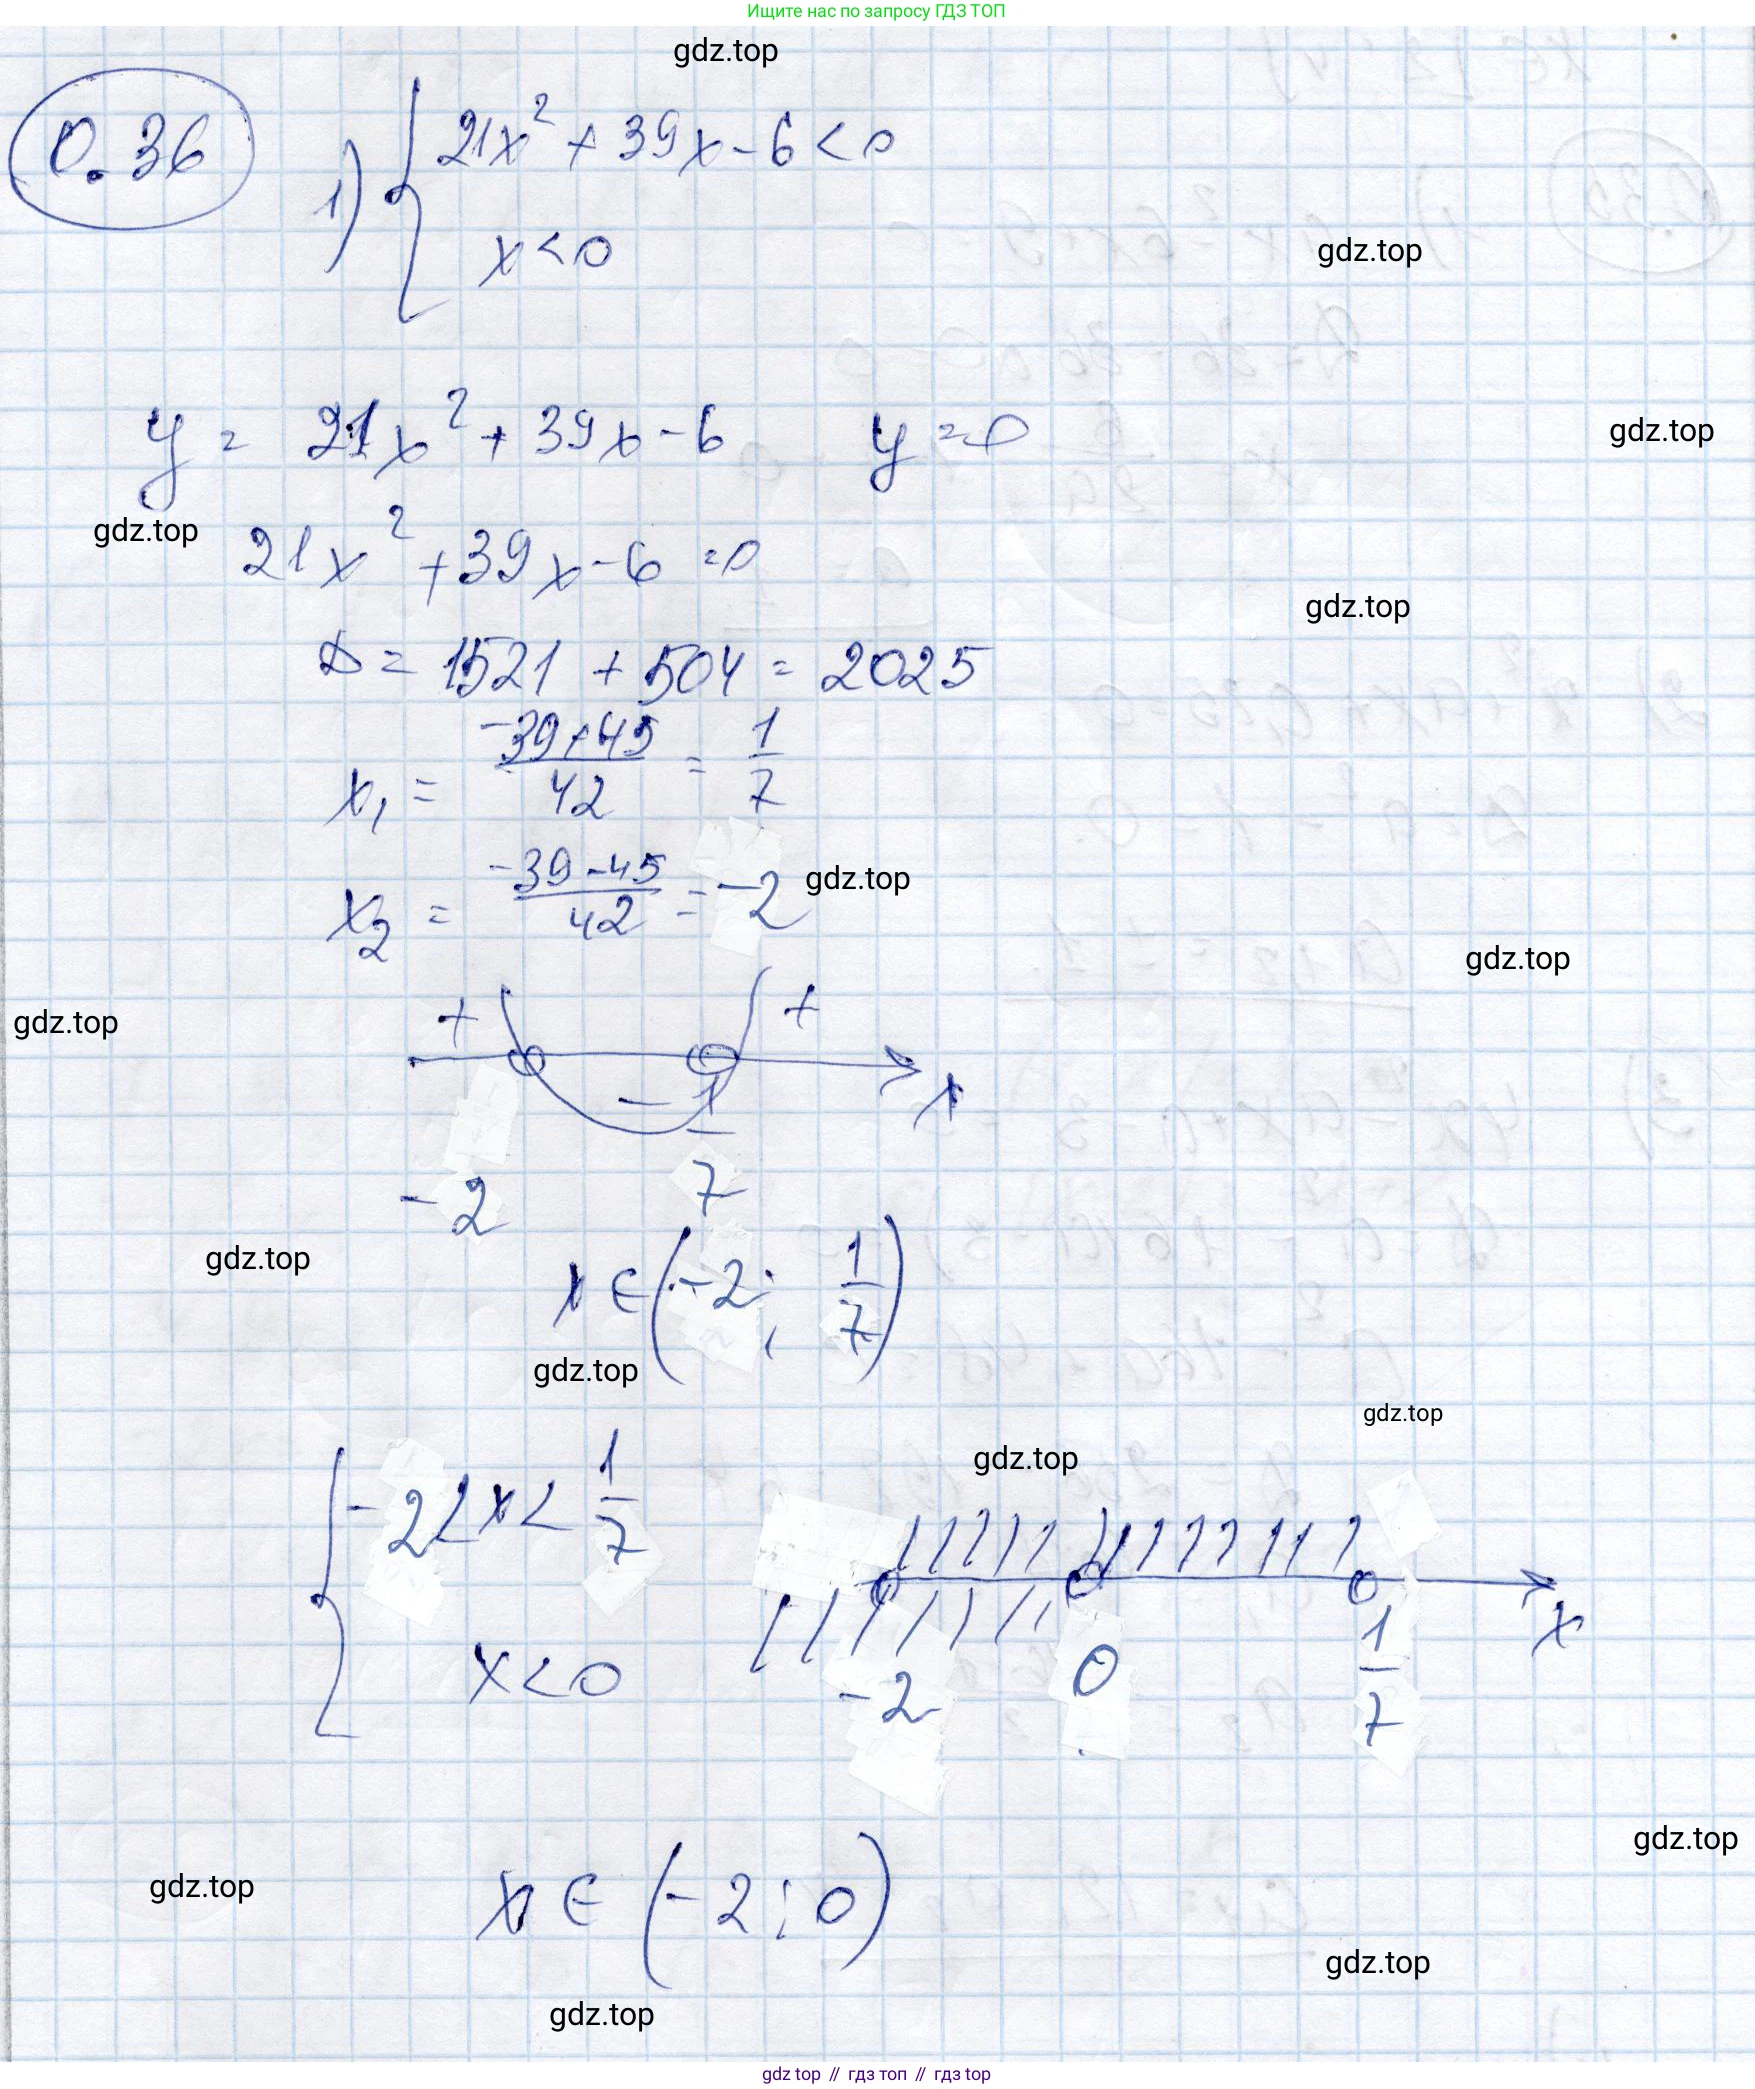 Ищите нас по запросу ГДЗ ТОП
gdz.top
0.36
1) { 21x² + 39x - 6 < 0
x < 0
gdz.top
y = 21x² + 39x - 6 y = 0
gdz.top
gdz.top
21x² + 39x - 6 = 0
gdz.top
D = 1521 + 504 = 2025
x₁ = (-39+45)/42 = 1/7
x₂ = (-39-45)/42 = -2
gdz.top
gdz.top
gdz.top
+ +
- x
-2 1/7
gdz.top
x ∈ (-2; 1/7)
gdz.top
gdz.top
gdz.top
{ -2 < x < 1/7
x < 0
-2 0 1/7 x
gdz.top
gdz.top
x ∈ (-2; 0)
gdz.top
gdz.top
gdz top // гдз топ // гдз top